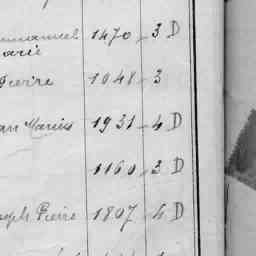 mmanuel 1470 3 D
arie
Pierre 1048 3
an Marius 1931 4 D
1160 3 D
oseph Pierre 1807 4 D